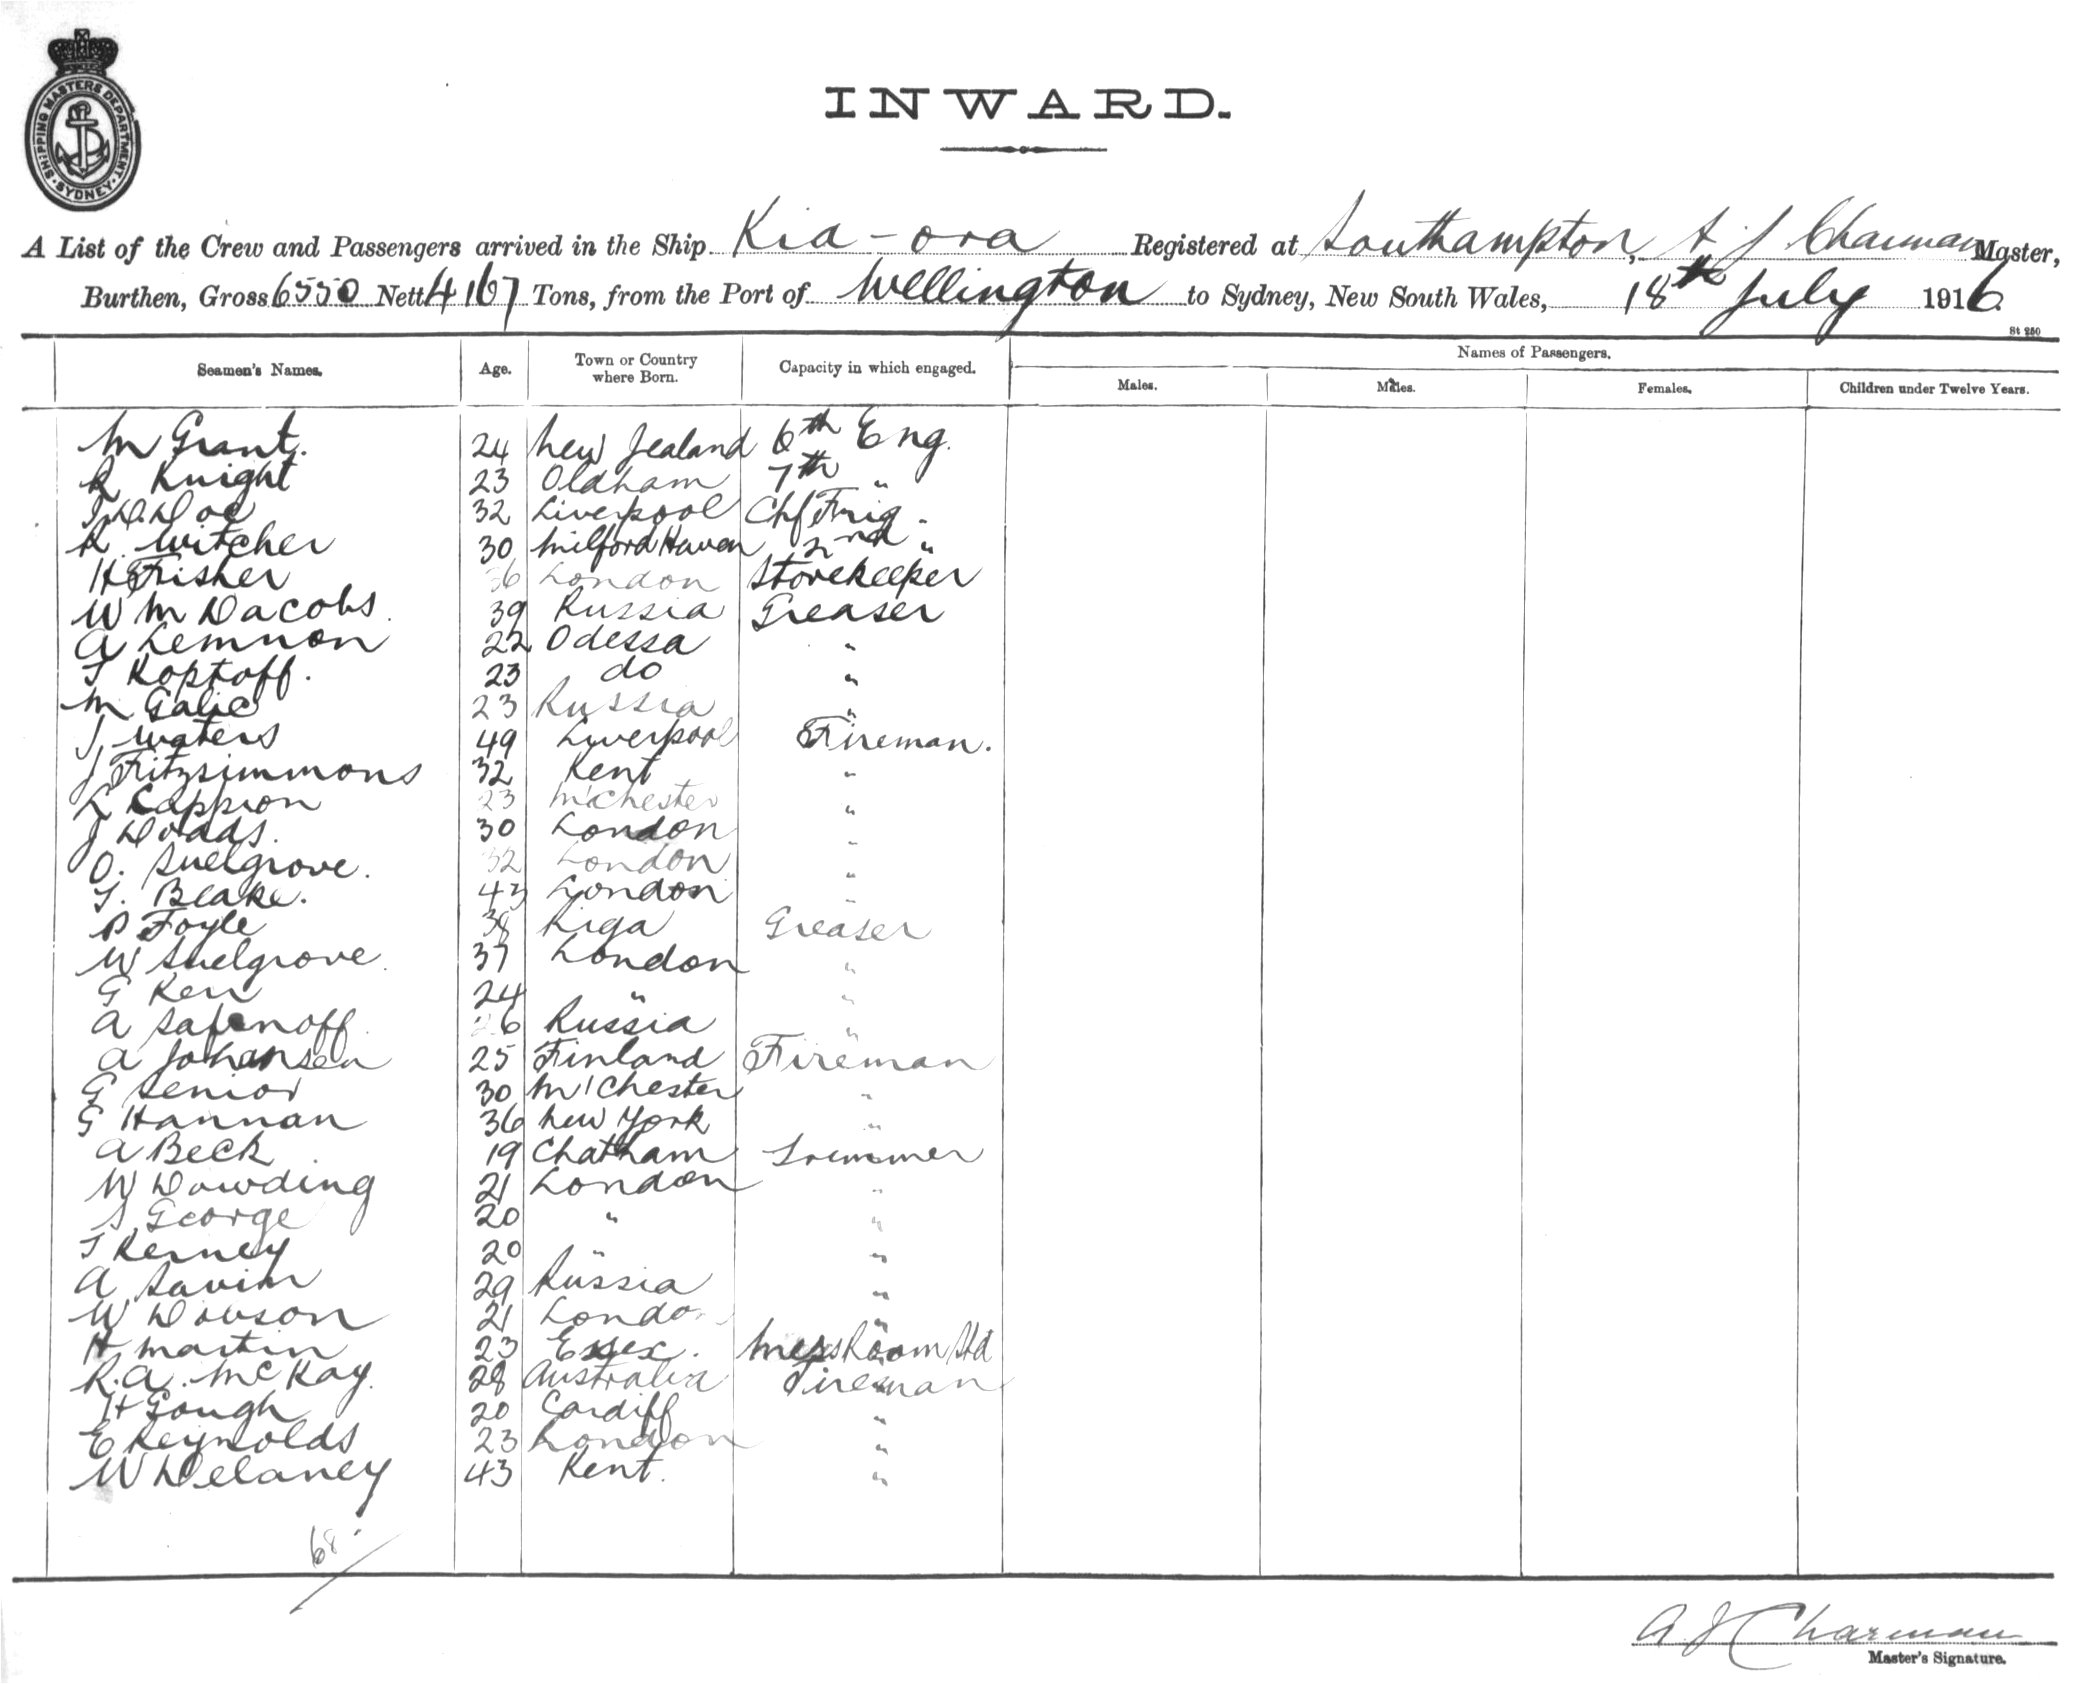 SHIPPING MASTERS DEPARTMENT
SYDNEY
INWARD.
A List of the Crew and Passengers arrived in the Ship Kia-ora Registered at Southampton, A J Charman Master,
Burthen, Gross 6550 Nett 4167 Tons, from the Port of Wellington to Sydney, New South Wales, 18th July 1916
St 250
Names of Passengers.
Seamen's Names. Age. Town or Country where Born. Capacity in which engaged. Males. Males. Females. Children under Twelve Years.
M Grant. 24 New Zealand 6th Eng.
R Knight 23 Oldham 7th "
J.D. Doe 32 Liverpool Chf Frig.
R Witcher 30 Milford Haven 2nd "
H Frisher 36 London Storekeeper
W M Dacobs. 39 Russia Greaser
A Lemnon 22 Odessa "
T Koptoff. 23 do "
M Galic 23 Russia "
J. Waters 49 Liverpool Fireman.
J Fitzsimmons 32 Kent "
L Cappion 23 M'Chester "
J Dodds. 30 London
O. Snelgrove. 32 London "
T. Blake. 43 London "
P Foyle 38 Riga Greaser
W Snelgrove. 37 London "
G Kerr 24 " "
A Safonoff. 26 Russia "
A Johansen 25 Finland Fireman
G Senior 30 M'Chester "
G Hannan 36 New York "
A Beck 19 Chatham Trimmer
W Dowding 21 London "
S George 20 " "
T Kerney 20 " "
A Savin 29 Russia "
W Dobson 21 London "
H Martin 23 Essex. Mess Room Std
R.A. McKay. 28 Australia Fireman
H Gough 20 Cardiff "
E Reynolds 23 London "
W Delaney 43 Kent. "
68.
A J Charman
Master's Signature.